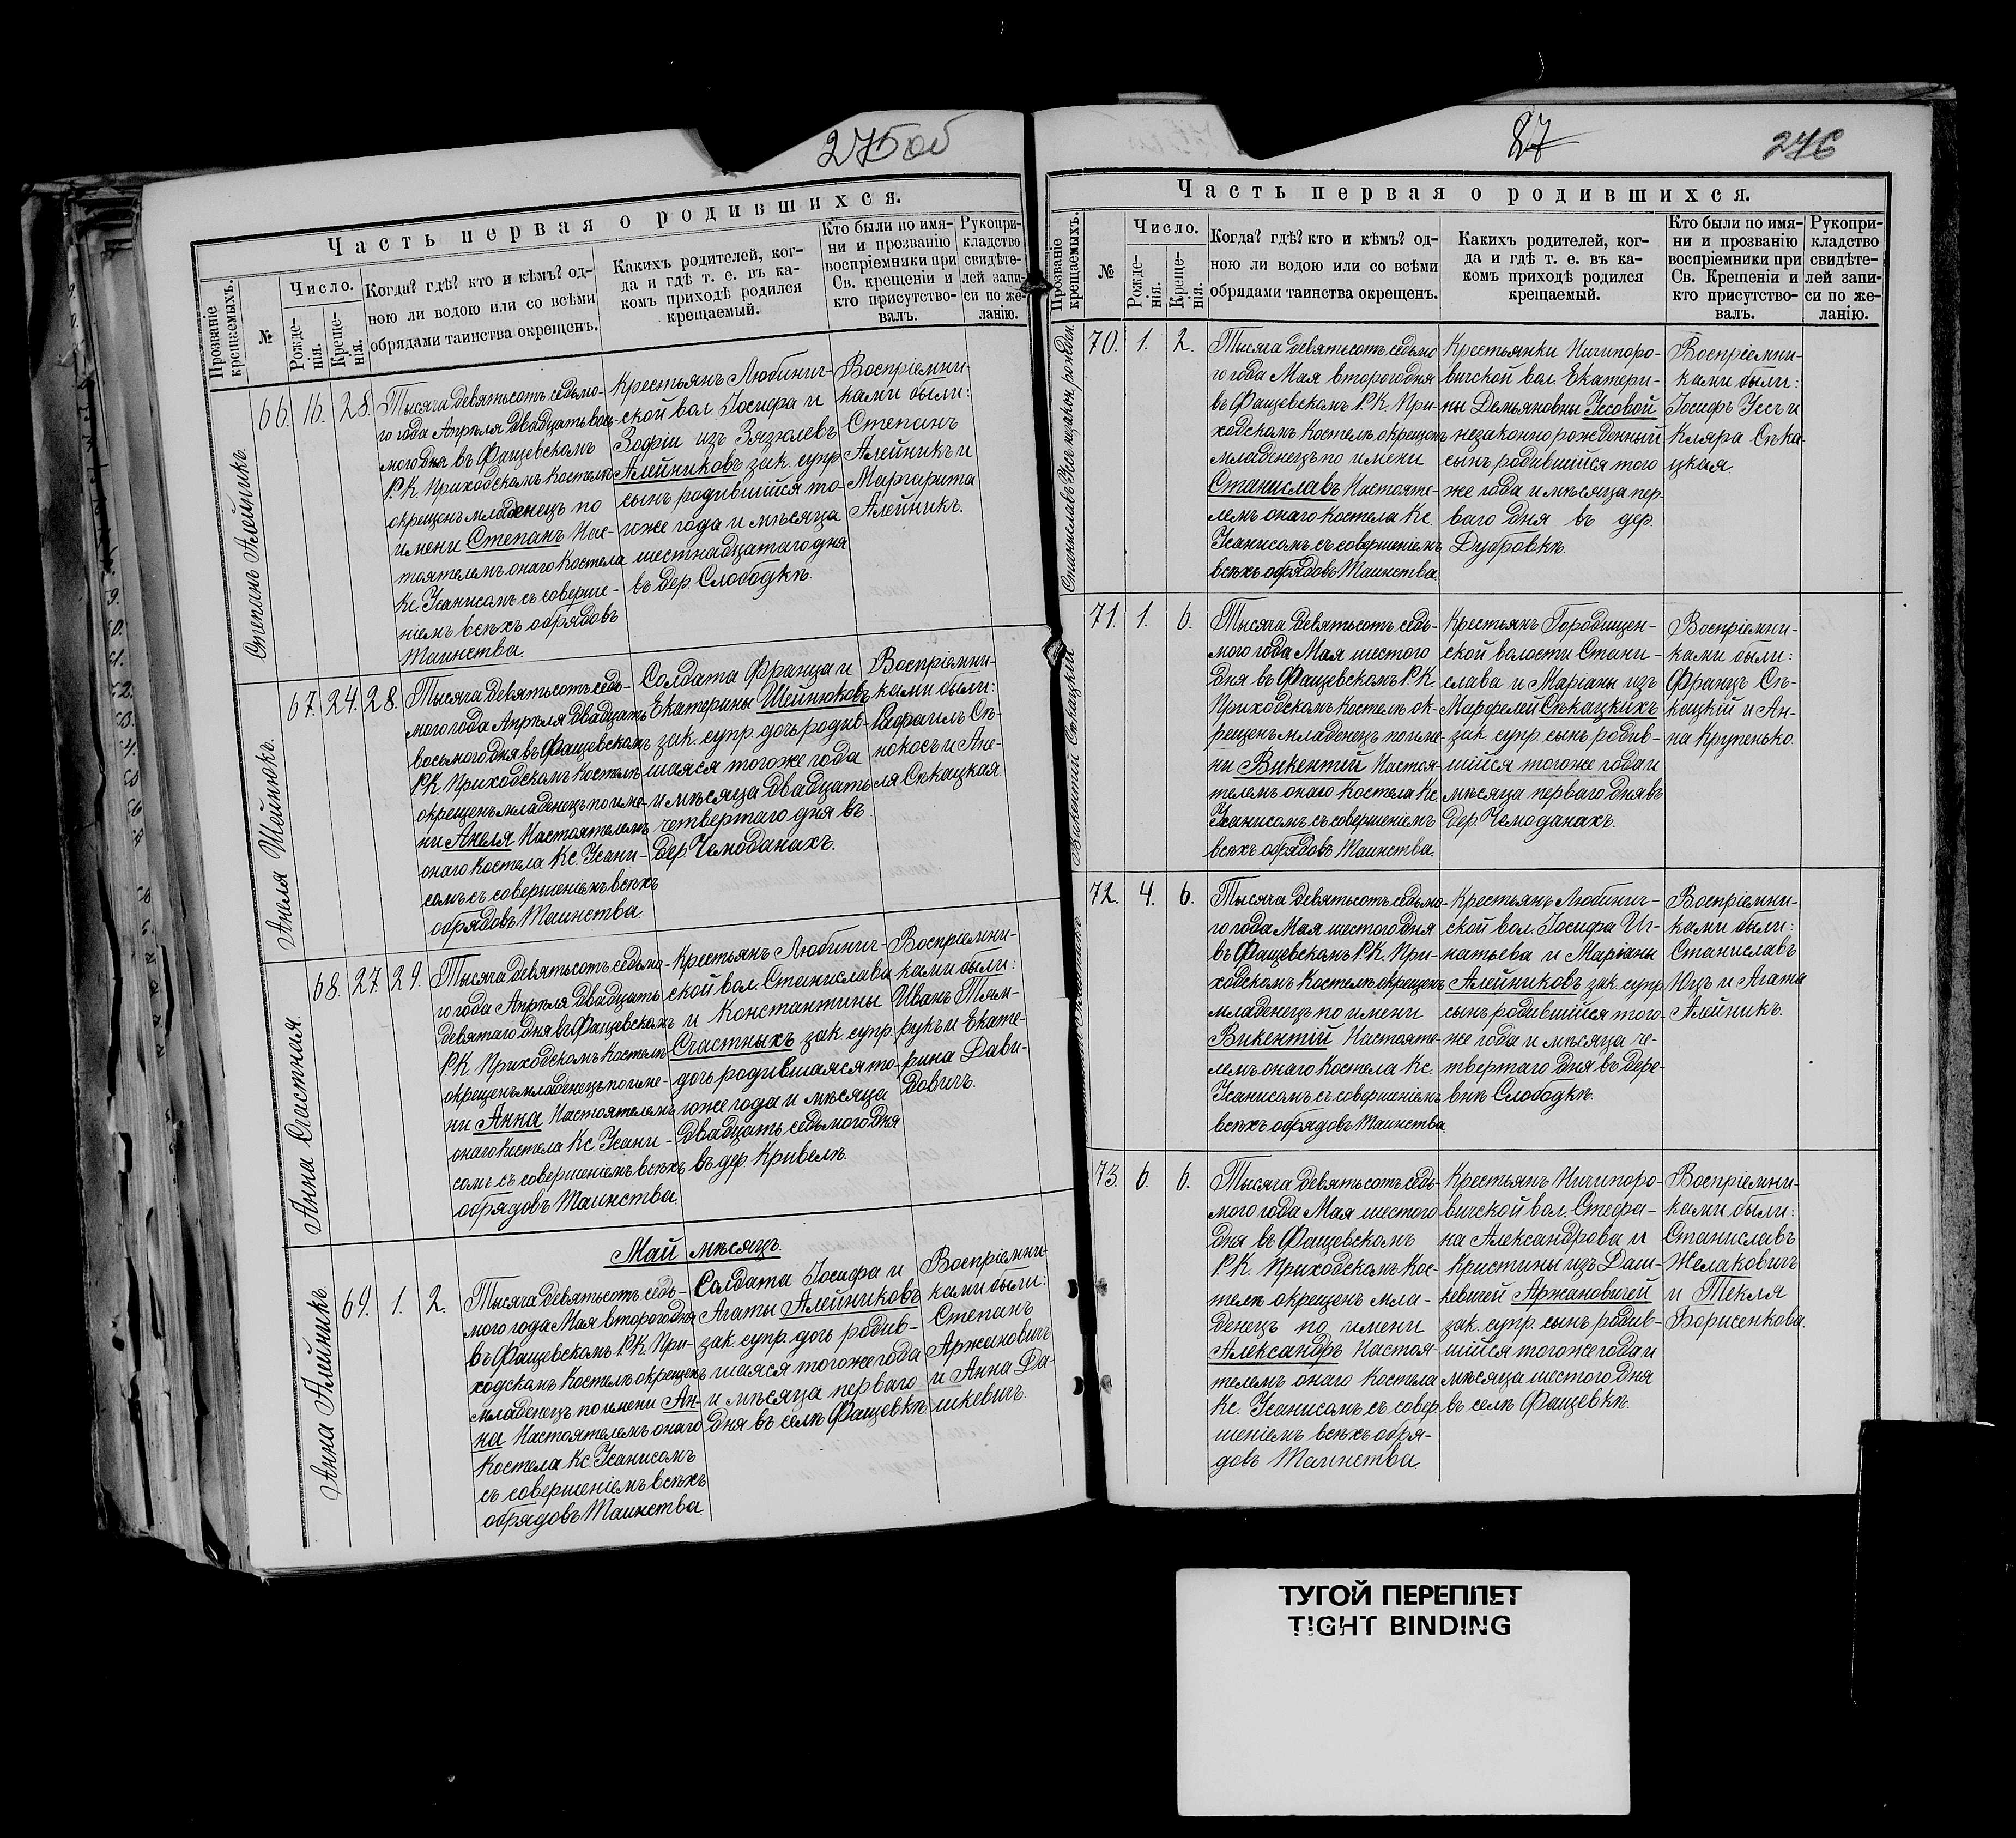 275об
Часть первая о родившихся.
Прозваніе крещаемыхъ.
№
Число.
Рожде-
нія.
Креще-
нія.
Когда? гдѣ? кто и кѣмъ? од-
ною ли водою или со всѣми
обрядами таинства окрещенъ.
Какихъ родителей, ког-
да и гдѣ т. е. въ ка-
комъ приходѣ родился
крещаемый.
Кто были по имя-
ни и прозванію
воспріемники при
Св. Крещеніи и
кто присутство-
валъ.
Рукопри-
кладство
свидѣте-
лей запи-
си по же-
ланію.
Степанъ Алейникъ
66. 16. 28.
Тысяча девятьсотъ седьмо-
го года Апрѣля двадцать вось-
мого дня въ Фащевскомъ
Р.К. Приходскомъ Костелѣ
окрещенъ младенецъ по
имени Степанъ Нас-
тоятелемъ онаго Костела
Кс. Усанисомъ съ соверше-
ніемъ всѣхъ обрядовъ
Таинства.
Крестьянъ Любинич-
ской вол. Іосифа и
Зофіи изъ Зязюлевъ
Алейниковъ зак. супр.
сынъ родившійся то-
гоже года и мѣсяца
шестнадцатаго дня
въ дер. Слободкѣ.
Воспріемни-
ками были:
Степанъ
Алейникъ и
Маргарита
Алейникъ.
Анеля Шейнюкъ.
67. 24. 28.
Тысяча девятьсотъ седь-
мого года Апрѣля двадцать
восьмого дня въ Фащевскомъ
Р.К. Приходскомъ Костелѣ
окрещенъ младенецъ по име-
ни Анеля Настоятелемъ
онаго Костела Кс. Усани-
сомъ съ совершеніемъ всѣхъ
обрядовъ Таинства.
Солдата Франца и
Екатерины Шейнюковъ
зак. супр. дочь родив-
шаяся тогоже года
и мѣсяца двадцать
четвертаго дня въ
дер. Чемоданахъ.
Воспріемни-
ками были:
Рафаилъ Сѣ-
нокосъ и Ане-
ля Сѣкацкая
Анна Счастная.
68. 27. 29.
Тысяча девятьсотъ седьмо-
го года Апрѣля двадцать
девятаго дня въ Фащевскомъ
Р.К. Приходскомъ Костелѣ
окрещенъ младенецъ по име-
ни Анна Настоятелемъ
онаго Костела Кс. Усани-
сомъ съ совершеніемъ всѣхъ
обрядовъ Таинства.
Крестьянъ Любинич-
ской вол. Станислава
и Константины
Счастныхъ зак. супр.
дочь родившаяся то-
гоже года и мѣсяца
двадцать седьмого дня
въ дер. Кривелѣ.
Воспріемни-
ками были:
Иванъ Тям-
рукъ и Екате-
рина Дави-
довичъ.
Май мѣсяцъ.
Анна Алейникъ.
69. 1. 2.
Тысяча девятьсотъ седь-
мого года Мая второго дня
въ Фащевскомъ Р.К. При-
ходскомъ Костелѣ окрещенъ
младенецъ по имени Ан-
на Настоятелемъ онаго
Костела Кс. Усанисомъ
съ совершеніемъ всѣхъ
обрядовъ Таинства.
Солдата Іосифа и
Агаты Алейниковъ
зак. супр. дочь родив-
шаяся тогоже года
и мѣсяца перваго
дня въ селѣ Фащевкѣ.
Воспріемни-
ками были:
Степанъ
Аржановичъ
и Анна Да-
шкевичъ.
87
276
Часть первая о родившихся.
Прозваніе крещаемыхъ.
№
Число.
Рожде-
нія.
Креще-
нія.
Когда? гдѣ? кто и кѣмъ? од-
ною ли водою или со всѣми
обрядами таинства окрещенъ.
Какихъ родителей, ког-
да и гдѣ т. е. въ ка-
комъ приходѣ родился
крещаемый.
Кто были по имя-
ни и прозванію
воспріемники при
Св. Крещеніи и
кто присутство-
валъ.
Рукопри-
кладство
свидѣте-
лей запи-
си по же-
ланію.
Станиславъ Уссъ незакон. рожден.
70. 1. 2.
Тысяча девятьсотъ седьмо
го года Мая второго дня
въ Фащевскомъ Р.К. При-
ходскомъ Костелѣ окрещенъ
младенецъ по имени
Станиславъ Настояте-
лемъ онаго Костела Кс.
Усанисомъ съ совершеніемъ
всѣхъ обрядовъ Таинства.
Крестьянки Ничипоро-
вичской вол. Екатери-
ны Демьяновны Уссовой
незаконнорожденный
сынъ родившійся того
же года и мѣсяца пер-
ваго дня въ дер.
Дубровкѣ.
Воспріемни-
ками были:
Іосифъ Уссъ и
Кляра Сѣка-
цкая.
Викентій Сѣкацкій
71. 1. 6.
Тысяча девятьсотъ седь-
мого года Мая шестого
дня въ Фащевскомъ Р.К.
Приходскомъ Костелѣ ок-
рещенъ младенецъ по име-
ни Викентій Настоя-
телемъ онаго Костела Кс.
Усанисомъ съ совершеніемъ
всѣхъ обрядовъ Таинства.
Крестьянъ Городищен-
ской волости Стани-
слава и Маріаны изъ
Марфелей Сѣкацкихъ
зак. супр. сынъ родив-
шійся тогоже года и
мѣсяца перваго дня въ
дер. Чемоданахъ.
Воспріемни-
ками были:
Францъ Сѣ-
кацкій и Ан-
на Крупенько.
72. 4. 6.
Тысяча девятьсотъ седьмо-
го года Мая шестого дня
въ Фащевскомъ Р.К. При-
ходскомъ Костелѣ окрещенъ
младенецъ по имени
Викентій Настояте-
лемъ онаго Костела Кс.
Усанисомъ съ совершеніемъ
всѣхъ обрядовъ Таинства.
Крестьянъ Любинич-
ской вол. Іосифа Иг-
натьева и Маріаны
Алейниковъ зак. супр.
сынъ родившійся того-
же года и мѣсяца че-
твертаго дня въ дере-
внѣ Слободкѣ.
Воспріемни-
ками были:
Станиславъ
Юцъ и Агата
Алейникъ.
73. 6. 6.
Тысяча девятьсотъ седь-
мого года Мая шестого
дня въ Фащевскомъ
Р.К. Приходскомъ Кос-
телѣ окрещенъ мла-
денецъ по имени
Александръ Настоя-
телемъ онаго Костела
Кс. Усанисомъ съ совер-
шеніемъ всѣхъ обря-
довъ Таинства.
Крестьянъ Ничипоро-
вичской вол. Стефа-
на Александрова и
Кристины изъ Даш-
кевичей Аржановичей
зак. супр. сынъ родив-
шійся тогоже года и
мѣсяца шестого дня
въ селѣ Фащевкѣ.
Воспріемни-
ками были:
Станиславъ
Желаковичъ
и Текля
Борисенкова.
ТУГОЙ ПЕРЕПЛЕТ
TIGHT BINDING